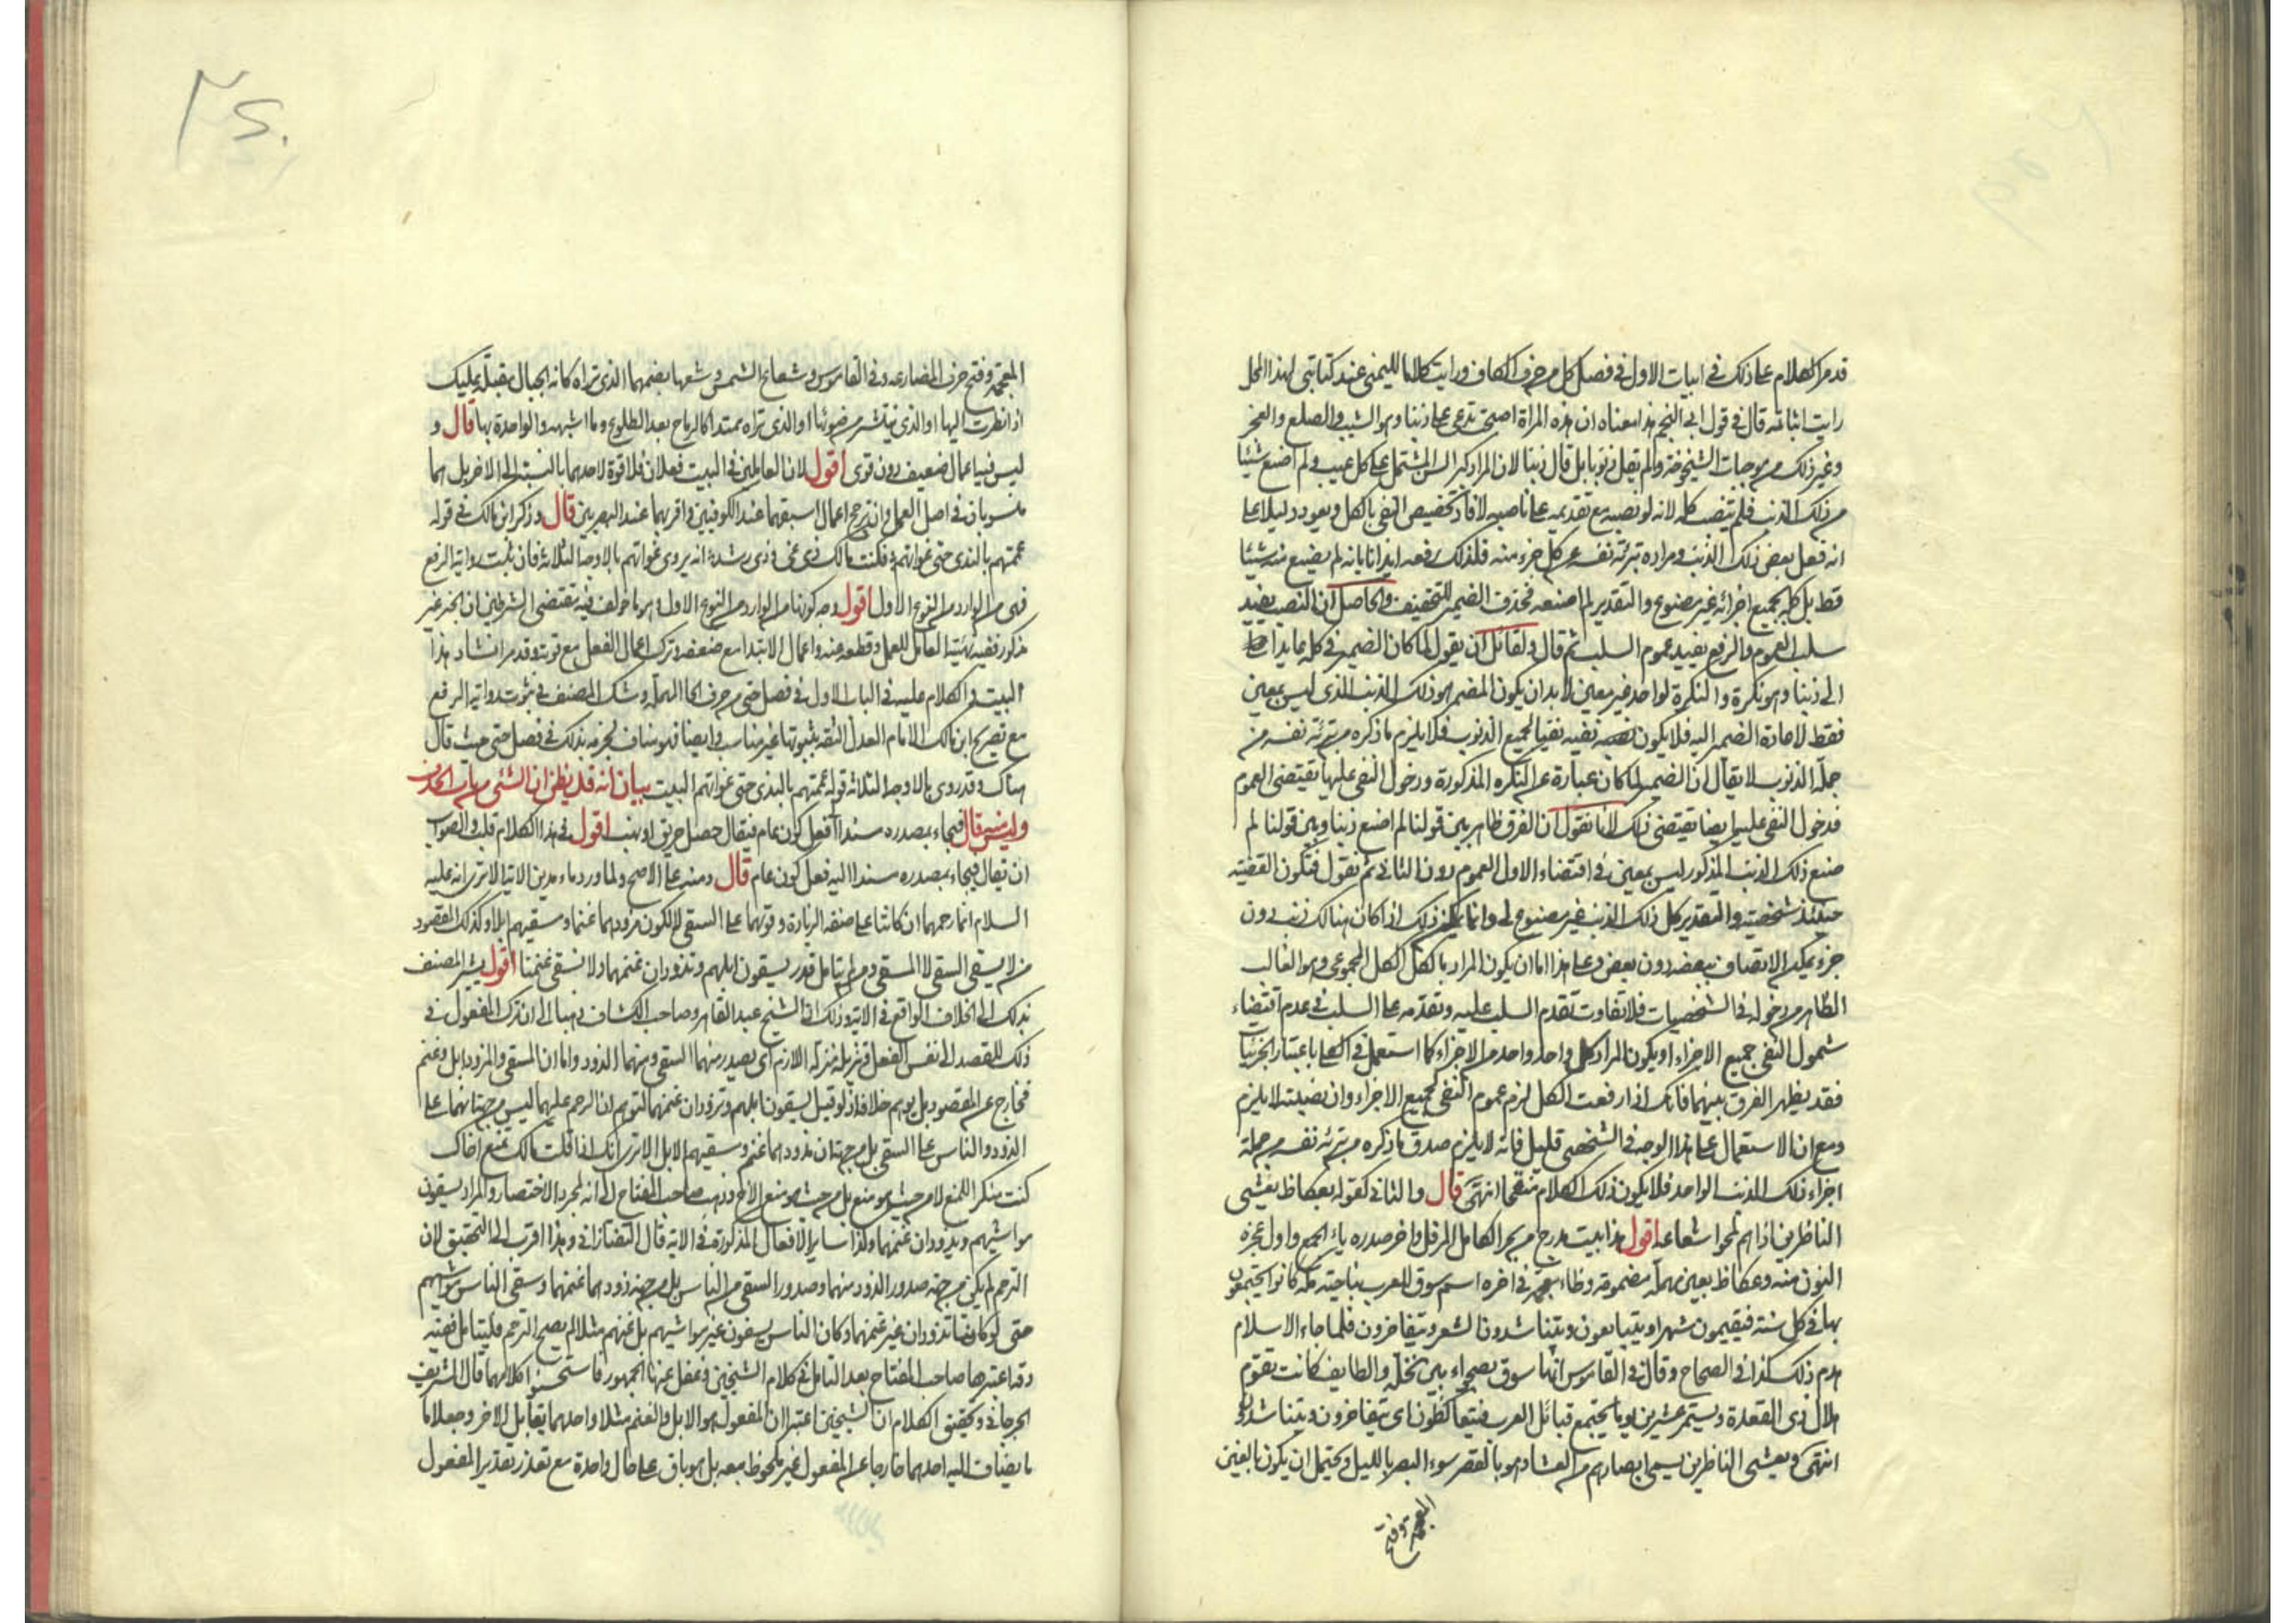 قد مر الكلام على ذلك في ابيات الاول في فصل كل من حرف الكاف ورايت كلاما لليمني عند كتابتي لهذا المحل
رايت اثباته قال في قول ابي النجم هذا معناه ان هذه المراة اصبحت تدعي علي ذنبا وهو الشيب والصلع والعجز
وغير ذلك من موجبات الشيخوخة ولم يقل ذنوبا بل قال ذنبا لان المراد كبر السن المشتمل على كل عيب ولم اصنع شيئا
من ذلك الذنب فلم ينصب كله لانه لو نصبه مع تقديمه على ناصبه لافاد تخصيص النفي بالكل ويعود دليلا على
انه فعل بعض ذلك الذنب ومراده تبرئة نفسه عن كل جزء منه فلذلك رفعه ايذانا بانه لم يصنع منه شيئا
قط بل كله بجميع اجزائه غير مصنوع والتقدير لم اصنعه فحذف الضمير للتخفيف والحاصل ان النصب يفيد
سلب العموم والرفع يفيد عموم السلب ثم قال ولقائل ان يقول لما كان الضمير في كله عايدا
الى ذنبا وهو نكرة والنكرة لواحد غير معين لا بد ان يكون المضمر هو ذلك الذنب الذي ليس بمعين
فقط لاعادة الضمير اليه فلا يكون نفيه نفيا لجميع الذنوب فلا يلزم ما ذكره من تبرئة نفسه من
جملة الذنوب لا يقال ان الضمير لما كان عبارة عن النكره المذكورة ودخول النفي عليها يقتضي العموم
فدخول النفي عليه ايضا يقتضي ذلك لانا نقول ان الفرق ظاهر بين قولنا لم اصنع ذنبا وبين قولنا لم
صنع ذلك الذنب المذكور ليس بمعين في اقتضاء الاول العموم دون الثاني ثم نقول فتكون القضية
حينئذ شخصية والتقدير كل ذلك الذنب غير مصنوع لي وانما يكون ذلك اذا كان هنالك ذنب دون
جزء يمكن الاتصاف ببعضه دون بعض وعلى هذا اما ان يكون المراد بالكل الكل المجموعي وهو الغالب
الظاهر من دخوله في الشخصيات فلا تفاوت بتقدم السلب عليه وتقدمه على السلب في عدم اقتضاء
شمول النفي جميع الاجزاء او يكون المراد كل واحد واحد من الاجزاء كما استعمل في الكل باعتبار الجزئيات
فقد يظهر الفرق بينهما فانك اذا رفعت الكل لزم عموم النفي لجميع الاجزاء وان نصبته لا يلزم
ومع ان الاستعمال على هذا الوجه في الشخصي قليل فانه لا يلزم صدق ما ذكره من تبرئة نفسه من جملة
اجزاء ذلك الذنب الواحد فلا يكون ذلك الكلام متقحا انتهى قال والثاني كقوله بعكاظ يعشي
الناظرين اذا هم لمحوا شعاعه اقول هذا بيت مدرج من بحر الكامل المرفل واخر صدره ياء الجمع واول عجزه
النون منه وعكاظ بعين مهملة مضمومة وظاء معجمة في اخره اسم سوق للعرب بناحية مكة كانوا يجتمعون
بها في كل سنة فيقيمون شهرا ويتبايعون ويتناشدون الشعر ويتفاخرون فلما جاء الاسلام
هدم ذلك كذا في الصحاح وقال في القاموس انها سوق بصحراء بين نخلة والطايف كانت تقوم
هلال ذي القعدة ويستمر عشرين يوما يجتمع قبائل العرب فيتعاكظون اي يتفاخرون ويتناشدون
انتهى ويعشي الناظرين يسيء ابصارهم من العشا وهو بالقصر سوء البصر بالليل ويحتمل ان يكون بالغين
المعجمة وفتح
٣٤٠
المعجمة وفتح حرف المضارعه وفي القاموس وشعاع الشمس وشعها بضمهما الذي تراه كانه الحبال مقبلة عليك
اذا نظرت اليها او الذي ينتشر من ضوئها او الذي تراه ممتدا كالرماح بعد الطلوع وما اشبهه والواحدة بها قال و
ليس فيه اعمال ضعيف دون قوي اقول لان العاملين في البيت فعلان فلا قوة لاحدهما بالنسبة الى الاخر بل هما
منسوبان في اصل العمل وان ترجح اعمال اسبقهما عند الكوفيين واقربهما عند البصريين قال وذكر ابن مالك في قوله
عممتهم بالندى حتى غواتهم فكنت مالك ذي غي وذي رشد انه يروى غواتهم بالاوجه الثلاثة فان ثبت رواية الرفع
فهي من الوارد من النوع الاول اقول وجه كونها من الوارد من النوع الاول وهو ما خولف فيه مقتضى الشرطين ان الخبر غير
مذكور ففيه تهيئة العامل للعمل وقطعه عنه واعمال الابتداء مع ضعفه وترك اعمال الفعل مع قوته وقد مر انشاد هذا
البيت والكلام عليه في الباب الاول في فصل حتى من حرف الحا المهملة وشك المصنف في ثبوت رواية الرفع
مع تصريح ابن مالك الامام العدل الثقة بثبوتها غير مناسب وايضا فهو مناف لجزمه بذلك في فصل حتى حيث قال
هناك وقد روي بالاوجه الثلاثة قوله عممتهم بالندى حتى غواتهم البيت بيان انه قد يظن ان الشئ من باب الحذف
وليس منه قال فيجاء بمصدره مسندا الفعل كون عام فيقال حصل حريق او نهب اقول في هذا الكلام قلب والصواب
ان يقال فيجاء بمصدره مسندا اليه فعل كون عام قال ومنه على الاصح ولما ورد ماء مدين الاية الا ترى انه عليه
السلام انما رحمهما ان كانتا على صفة الزيادة وقومهما على السقي لا لكون مزودهما غنما ومسقيهم ابلا وكذلك المقصود
من لا يسقي السقي لا المسقي ومن لم يتامل قدر يسقون ابلهم وتذودان غنمهما ولا نسقي غنمنا اقول يشير المصنف
بذلك الى الخلاف الواقع في الاية وذلك ان الشيخ عبد القاهر وصاحب الكشاف ذهبا الى ان ترك المفعول في
ذلك للقصد الى نفس الفعل وتنزيله منزلة اللازم اي يصدر منهما السقي ومنهما الذود واما ان المسقي والمزود ابل وغنم
فخارج عن المقصود بل يوهم خلافه اذ لو قيل يسقون ابلهم وتزودان غنمهما لتوهم ان الرحم عليهما ليس من جهة انهما على
الذود والناس على السقي بل من جهة ان مذودهما غنم ومسقيهم الابل الا ترى انك اذا قلت مالك تمنع اخاك
كنت منكرا للمنع لا من حيث هو منع بل من حيث هو منع الاخ وذهب صاحب المفتاح الى انه لمجرد الاختصار والمراد يسقون
مواشيهم ويذودان غنمهما وكذا ساير الافعال المذكورة في الاية قال التفتازاني وهذا اقرب الى التحقيق لان
الترحم لم يكن من جهة صدور الذود منهما وصدور السقي من الناس بل من جهة ذودهما غنمهما وسقي الناس مواشيهم
حتى لو كانتا تذودان غير غنمهما وكان الناس يسقون غير مواشيهم بل غنمهم مثلا لم يصح الترحم فليتامل ففيه
دقة اعتبرها صاحب المفتاح بعد التامل في كلام الشيخين وغفل عنها الجمهور فاستحسنوا كلامهما قال الشريف
الجرجاني وتحقيق الكلام ان الشيخين اعتبرا ان المفعول هو الابل والغنم مثلا واحدهما يقابل للاخر وجعلا ما
يضاف اليه احدهما خارجا عن المفعول غير ملحوظ معه بل هو باق على حال واحدة مع تعذر تقدير المفعول